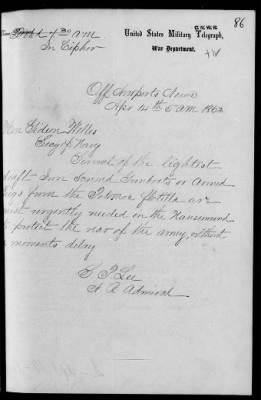 86
7 30 a.m.
In Cipher
United States Military Telegraph,
War Department.
Off Newports News
Apr 14th 5 am 1863
Hon Gideon Welles
Secy of Navy
Several of the lightest
draft Iron Screw'd Gunboats or Armed
Tugs from the Potomac flotilla are
most urgently needed in the Nansemund
to protect the rear of the army, without
a moments delay
S P Lee
A R Admiral